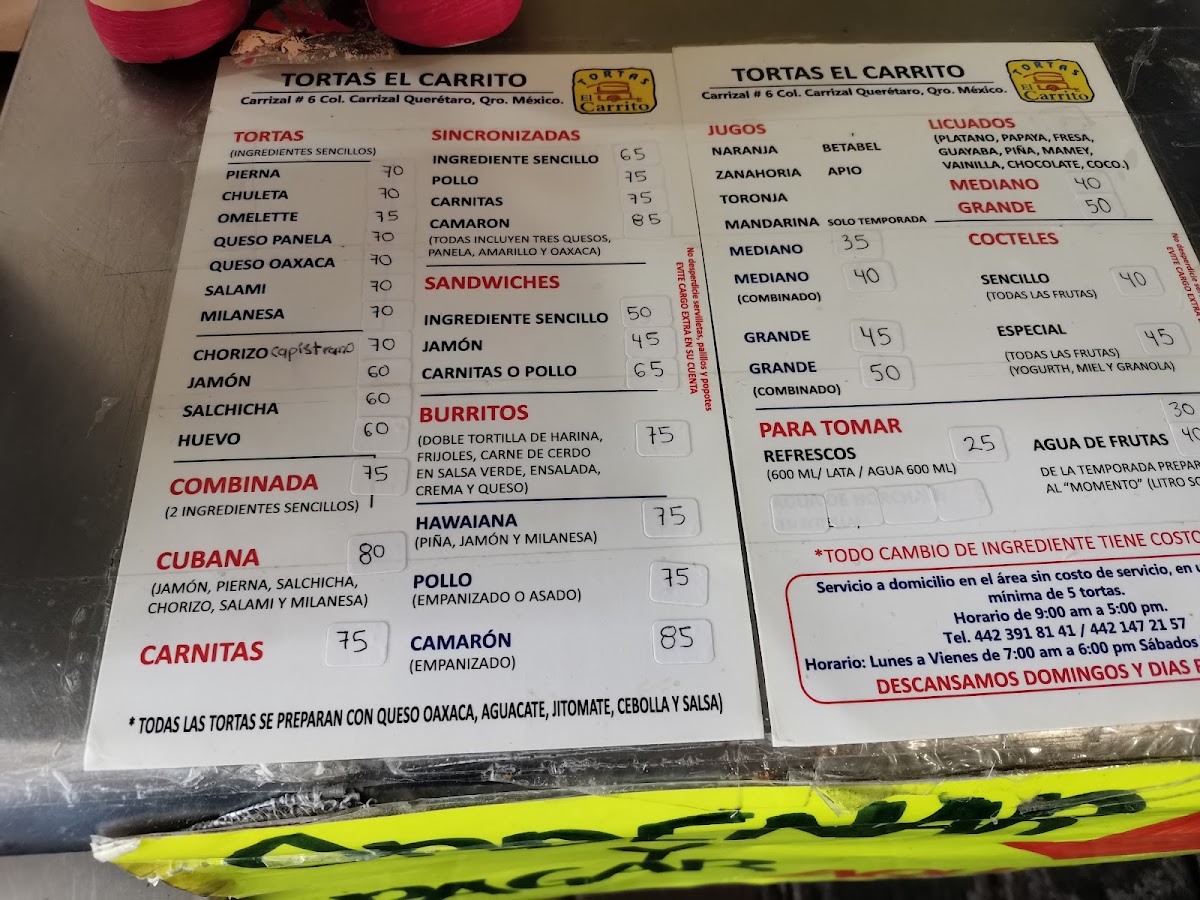 TORTAS EL CARRITO
Carrizal # 6 Col. Carrizal Querétaro, Qro. México.
TORTAS
El
Carrito
TORTAS
(INGREDIENTES SENCILLOS)
PIERNA 70
CHULETA 70
OMELETTE 75
QUESO PANELA 70
QUESO OAXACA 70
SALAMI 70
MILANESA 70
CHORIZO capistrano 70
JAMÓN 60
SALCHICHA 60
HUEVO 60
COMBINADA 75
(2 INGREDIENTES SENCILLOS)
CUBANA 80
(JAMÓN, PIERNA, SALCHICHA,
CHORIZO, SALAMI Y MILANESA)
CARNITAS 75
SINCRONIZADAS
INGREDIENTE SENCILLO 65
POLLO 75
CARNITAS 75
CAMARON 85
(TODAS INCLUYEN TRES QUESOS,
PANELA, AMARILLO Y OAXACA)
SANDWICHES
INGREDIENTE SENCILLO 50
JAMÓN 45
CARNITAS O POLLO 65
BURRITOS
(DOBLE TORTILLA DE HARINA, 75
FRIJOLES, CARNE DE CERDO
EN SALSA VERDE, ENSALADA,
CREMA Y QUESO)
HAWAIANA 75
(PIÑA, JAMÓN Y MILANESA)
POLLO 75
(EMPANIZADO O ASADO)
CAMARÓN 85
(EMPANIZADO)
No desperdicie servilletas, palillos y popotes
EVITE CARGO EXTRA EN SU CUENTA
* TODAS LAS TORTAS SE PREPARAN CON QUESO OAXACA, AGUACATE, JITOMATE, CEBOLLA Y SALSA)
TORTAS EL CARRITO
Carrizal # 6 Col. Carrizal Querétaro, Qro. México.
TORTAS
El
Carrito
JUGOS
NARANJA BETABEL
ZANAHORIA APIO
TORONJA
MANDARINA SOLO TEMPORADA
MEDIANO 35
MEDIANO 40
(COMBINADO)
GRANDE 45
GRANDE 50
(COMBINADO)
LICUADOS
(PLATANO, PAPAYA, FRESA,
GUAYABA, PIÑA, MAMEY,
VAINILLA, CHOCOLATE, COCO.)
MEDIANO 40
GRANDE 50
COCTELES
SENCILLO 40
(TODAS LAS FRUTAS)
ESPECIAL 45
(TODAS LAS FRUTAS)
(YOGURTH, MIEL Y GRANOLA)
No desperdicie servilletas,
EVITE CARGO EXTRA
PARA TOMAR
REFRESCOS 25
(600 ML/ LATA / AGUA 600 ML)
30
AGUA DE FRUTAS 40
DE LA TEMPORADA PREPAR
AL "MOMENTO" (LITRO SO
*TODO CAMBIO DE INGREDIENTE TIENE COSTO
Servicio a domicilio en el área sin costo de servicio, en u
mínima de 5 tortas.
Horario de 9:00 am a 5:00 pm.
Tel. 442 391 81 41 / 442 147 21 57
Horario: Lunes a Vienes de 7:00 am a 6:00 pm Sábados
DESCANSAMOS DOMINGOS Y DIAS
Y
PAGAR